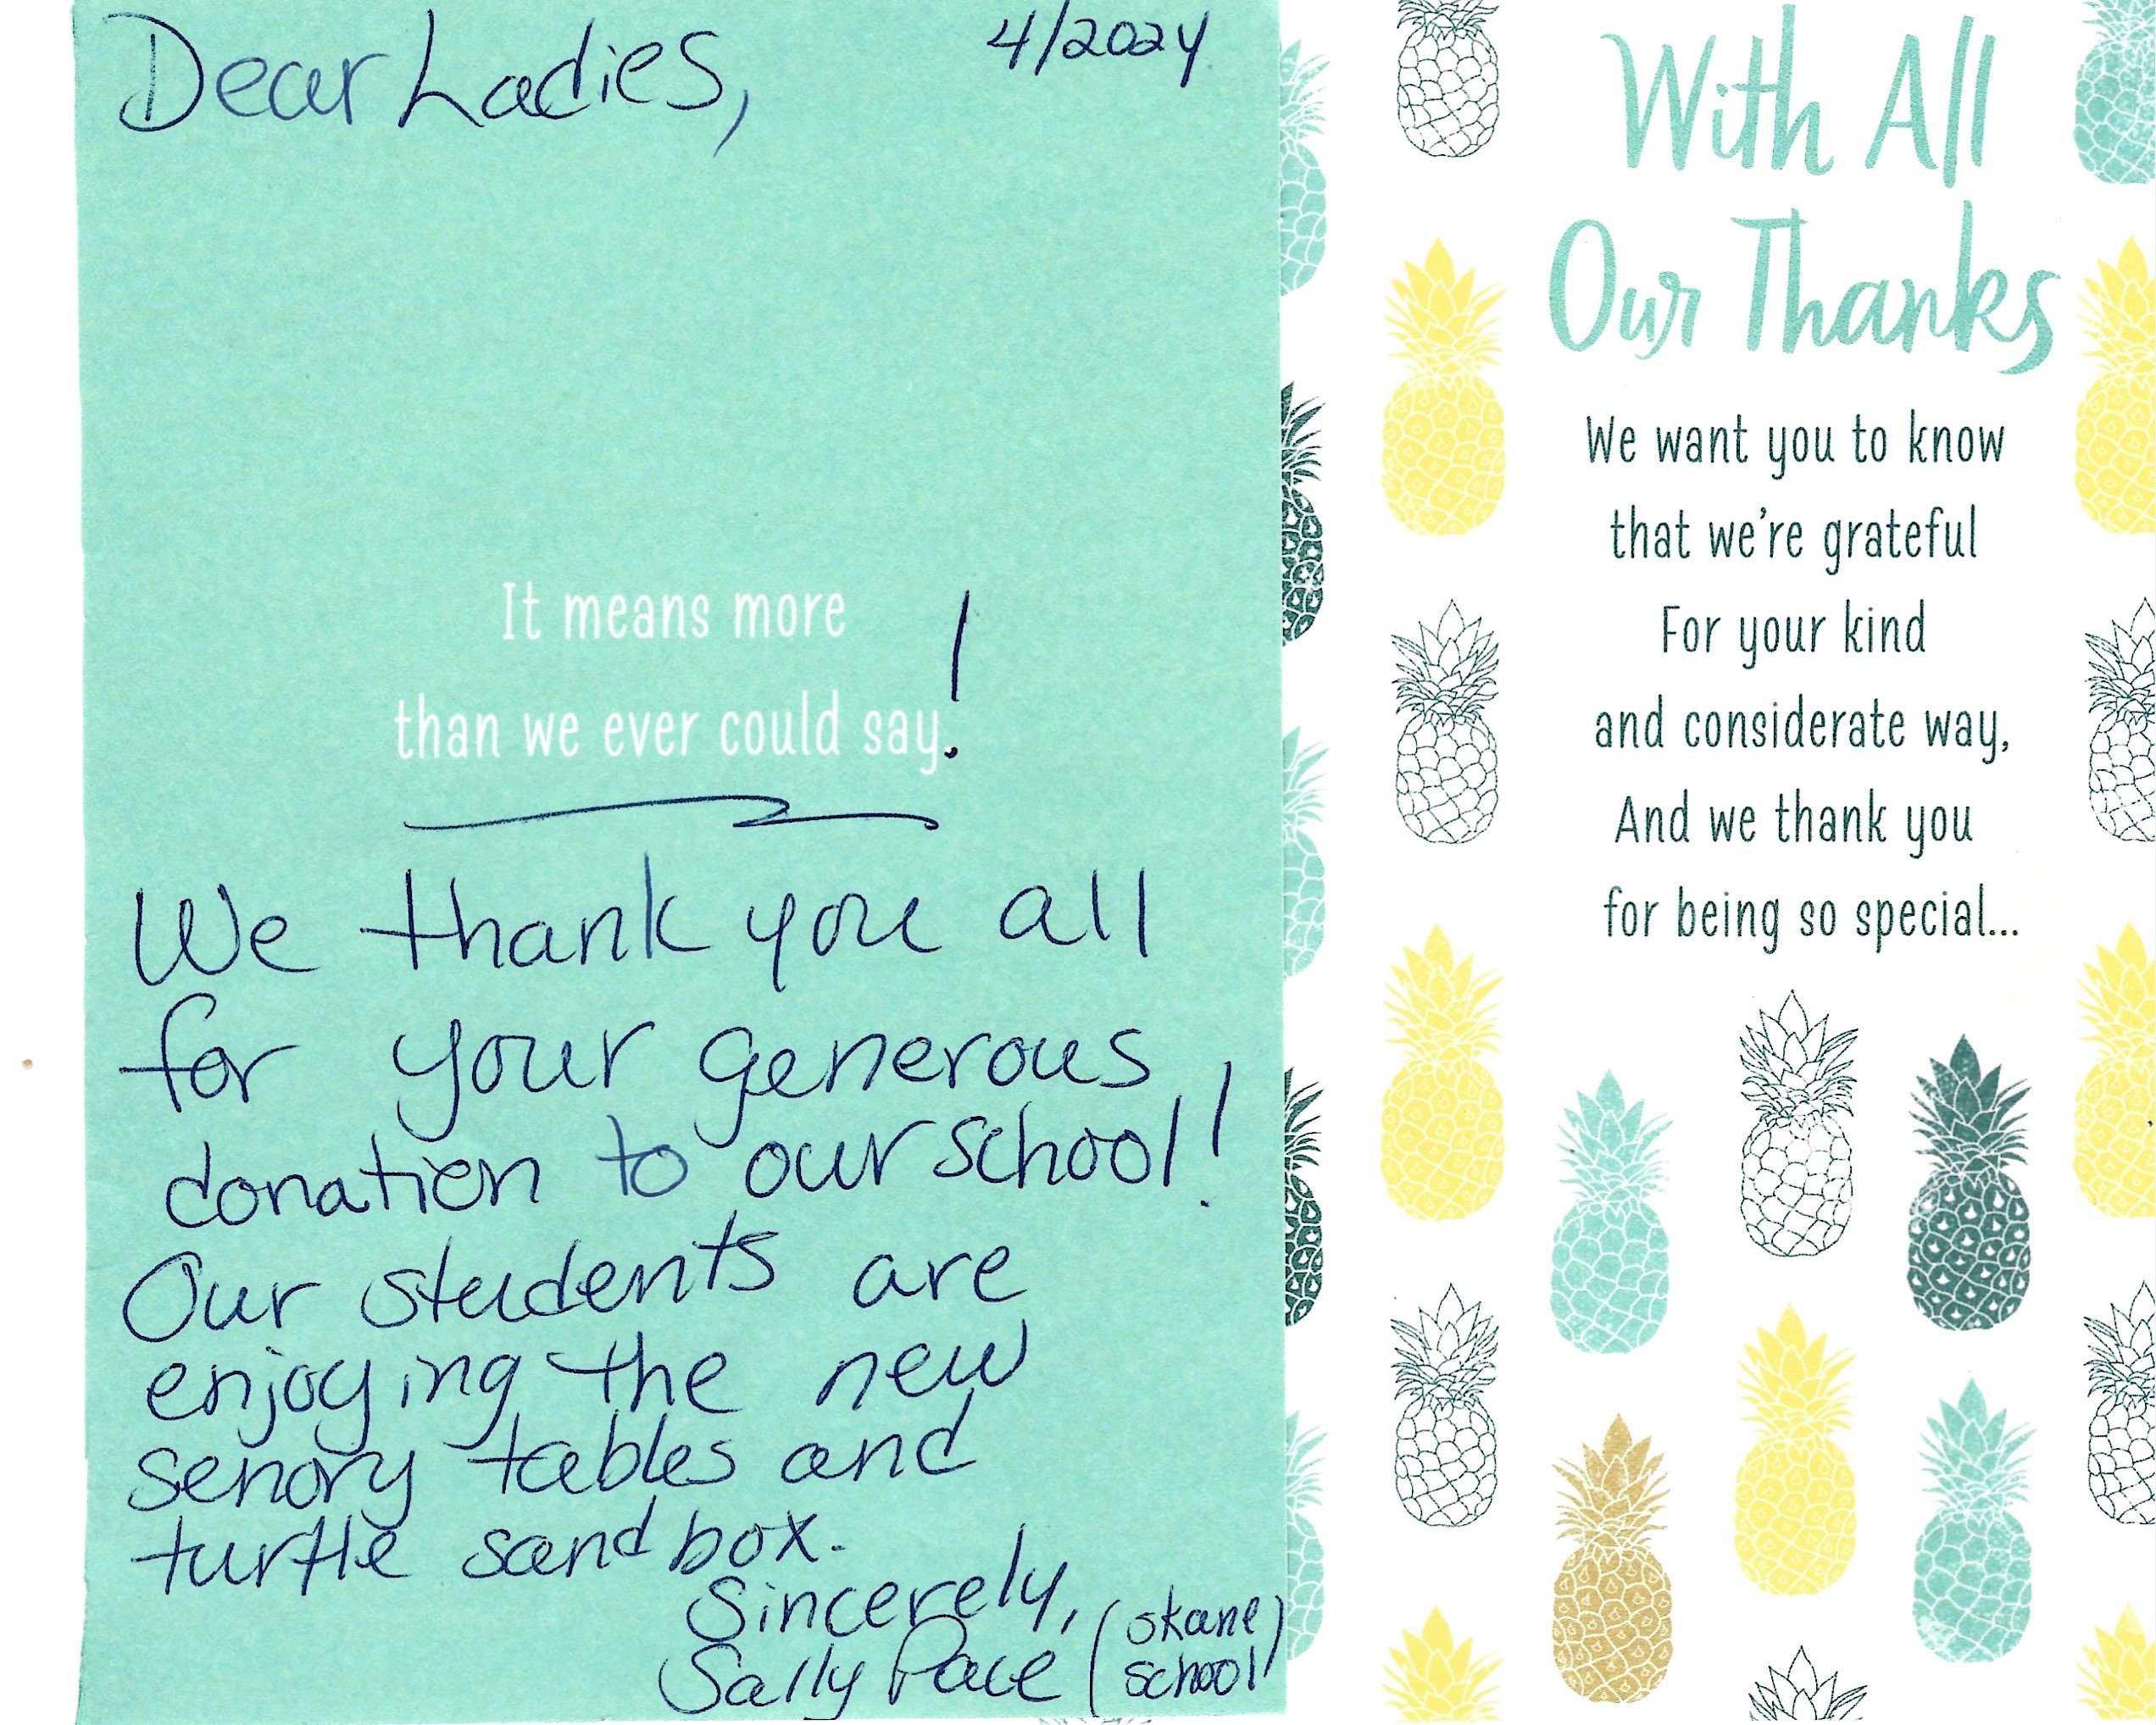 Dear Ladies,
4/2024
It means more
than we ever could say.!
We thank you all
for your generous
donation to our school!
Our students are
enjoying the new
senory tables and
turtle sand box.
Sincerely,
Sally Pace (skane
school)
With All
Our Thanks
We want you to know
that we're grateful
For your kind
and considerate way,
And we thank you
for being so special...